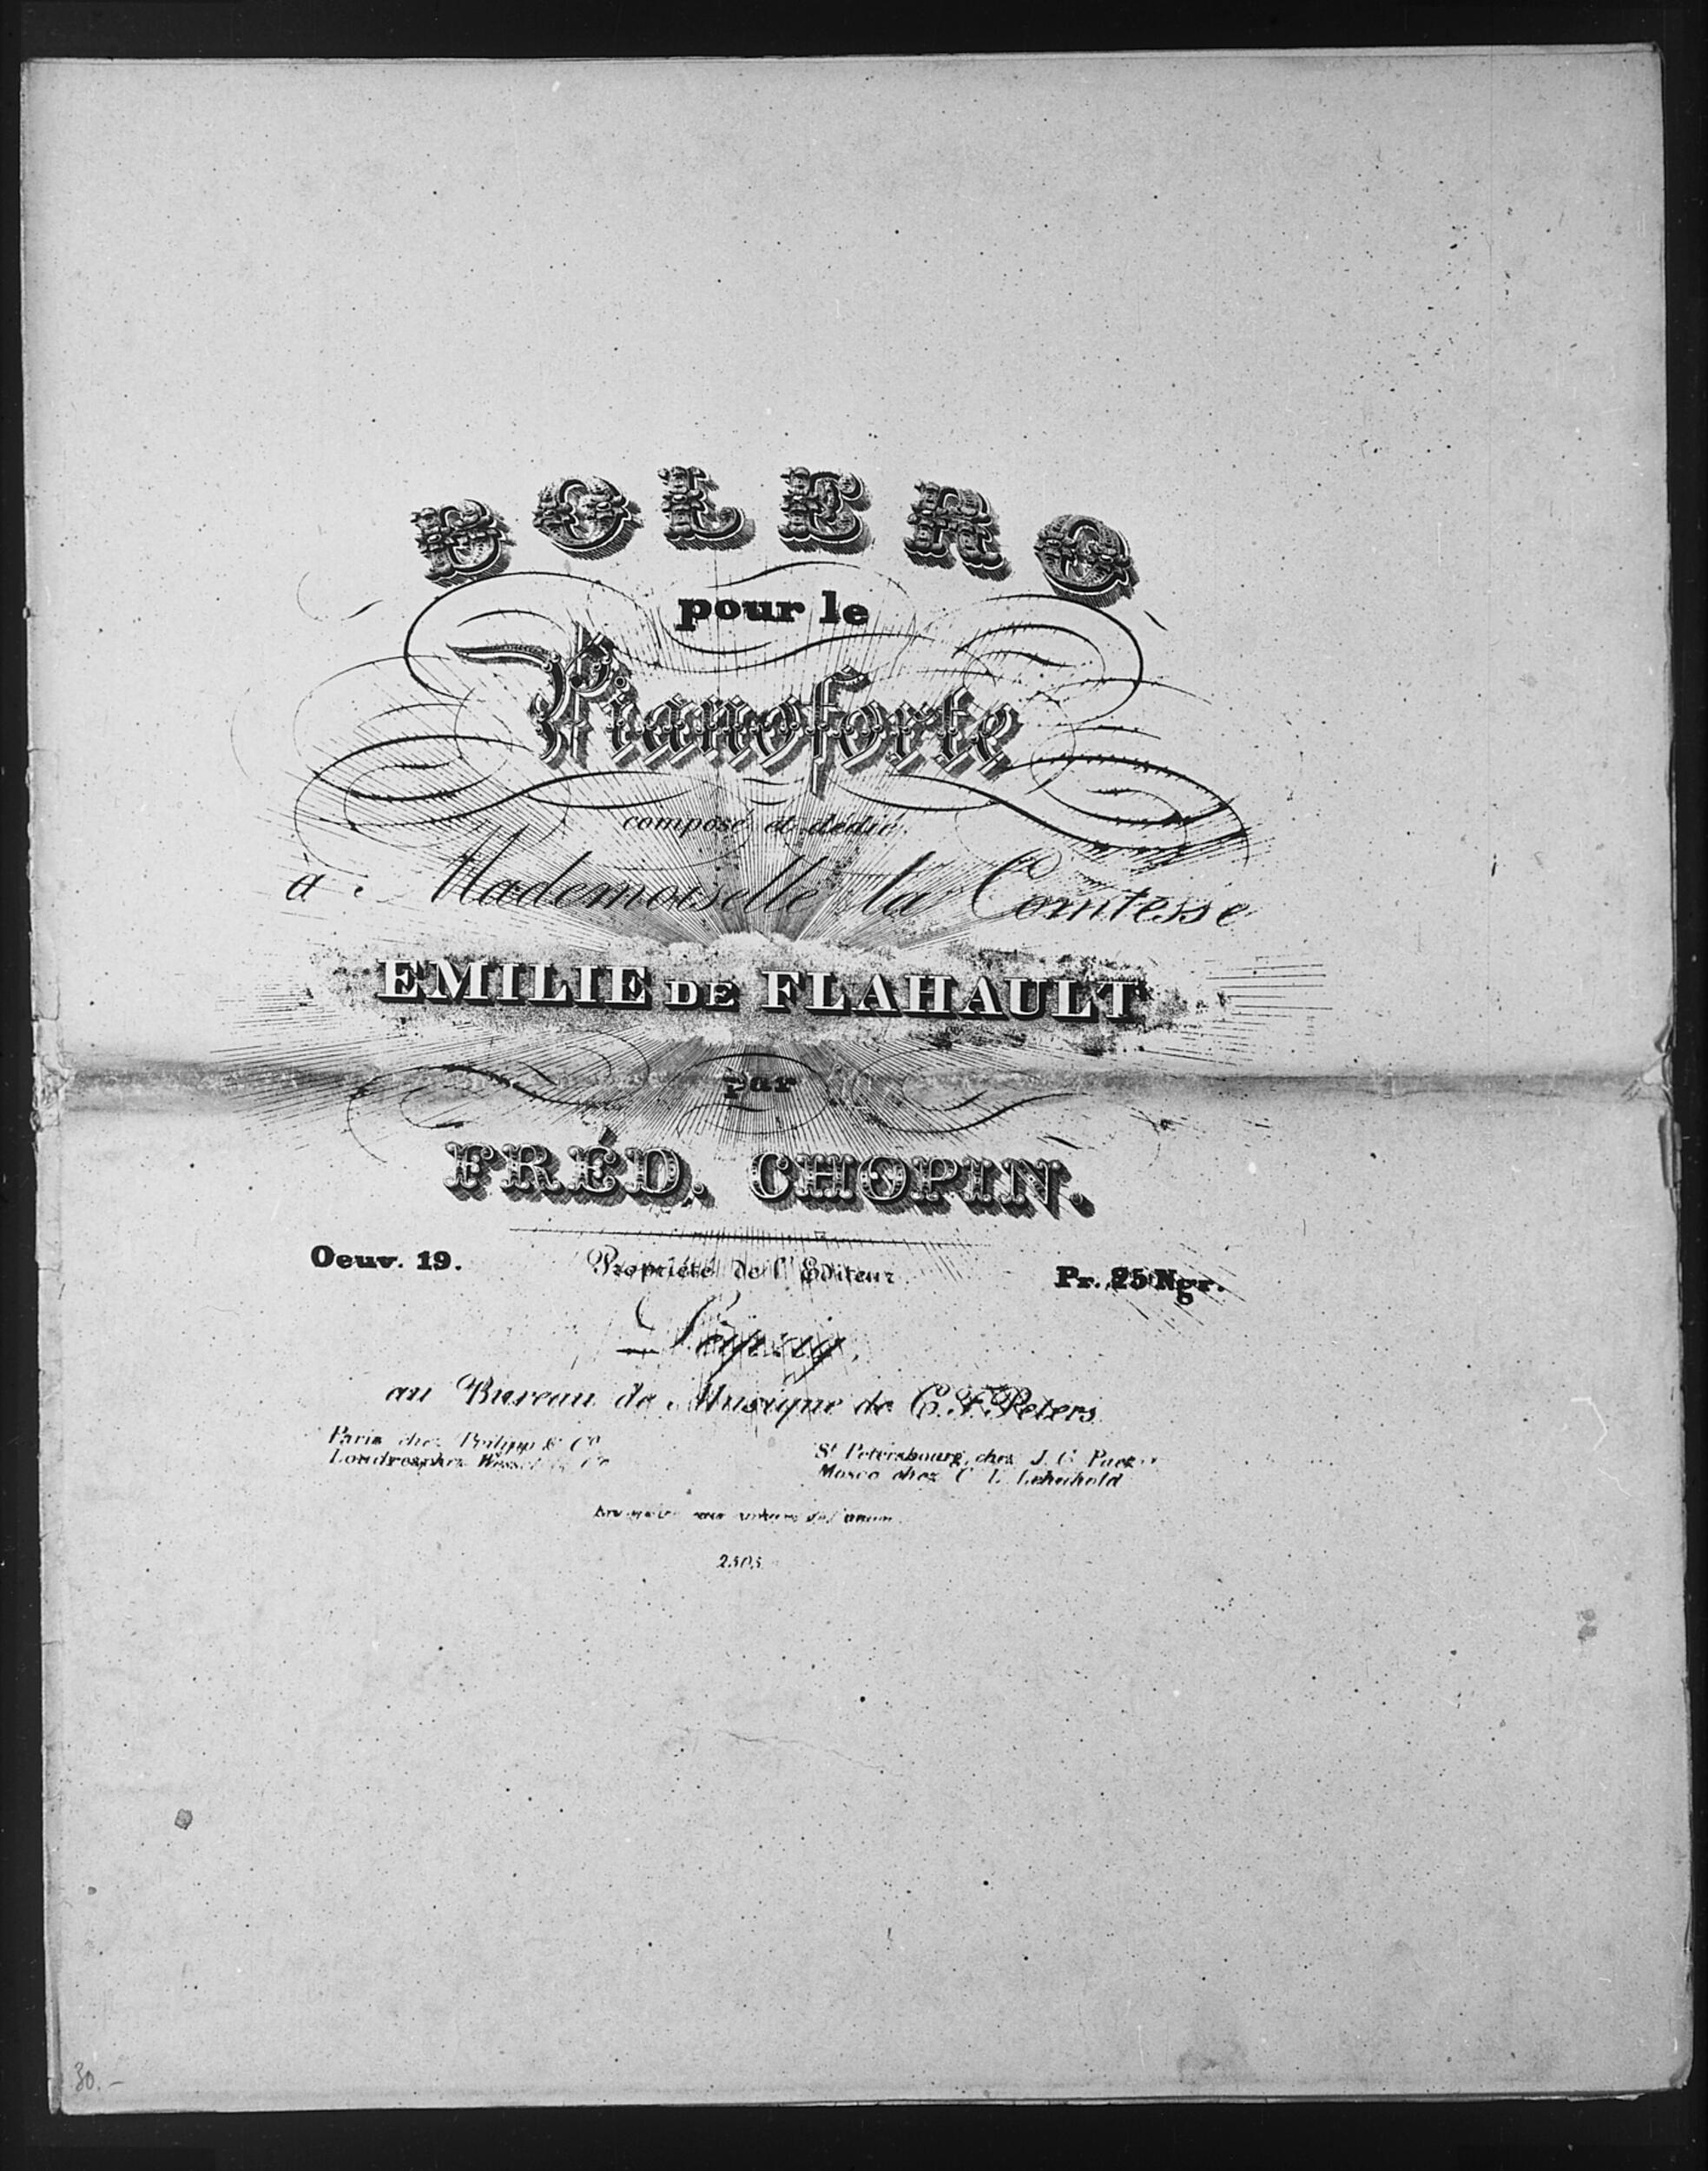 BOLERO
pour le
Pianoforte
composé et dédié
à Mademoiselle la Comtesse
EMILIE DE FLAHAULT
par
FRÉD. CHOPIN.
Oeuv. 19. Propriété de l'Editeur Pr. 25 Ngr.
Leipzig,
au Bureau de Musique de C. F. Peters
Paris chez Philipp & Co St Petersbourg, chez J. C.
Londres, chez Wessel & Co Mosco chez C. L. Lehnhold
2505
30.-